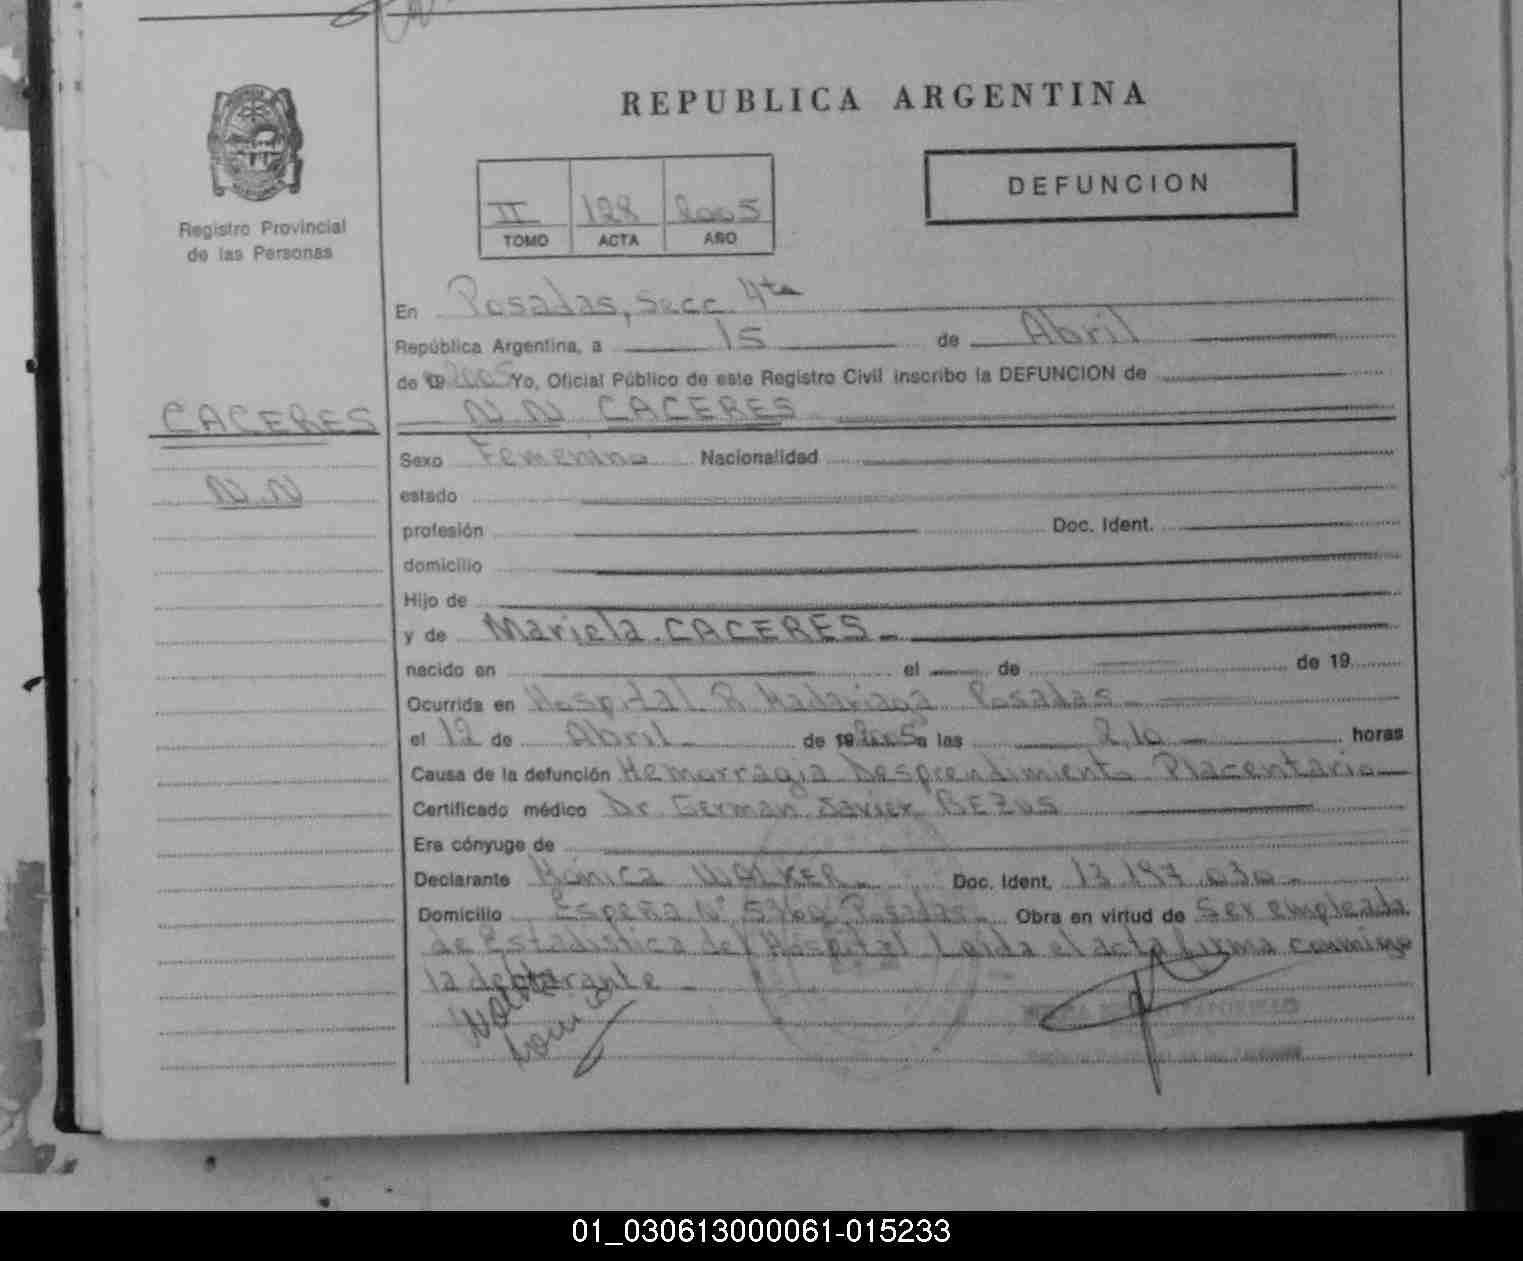 REPUBLICA ARGENTINA
DEFUNCION
Registro Provincial
de las Personas
II 128 2005
TOMO ACTA AÑO
En Posadas, Secc. 4ta
República Argentina, a 15 de Abril
de 19 2005 Yo, Oficial Público de este Registro Civil inscribo la DEFUNCION de
CACERES
N.N CACERES
Sexo Femenino Nacionalidad
N.N
estado
profesión Doc. Ident.
domicilio
Hijo de
y de Mariela CACERES
nacido en el de de 19
Ocurrida en Hospital R Madariaga Posadas
el 12 de Abril de 19 2005 a las 2,10 horas
Causa de la defunción Hemorragia Desprendimiento Placentario
Certificado médico Dr. German Javier BEZUS
Era cónyuge de
Declarante Mónica WALKER Doc. Ident. 13.197.030
Domicilio N° Posadas Obra en virtud de Ser empleada
de Estadistica del Hospital Leida el acta firma conmigo
la declarante
01_030613000061-015233